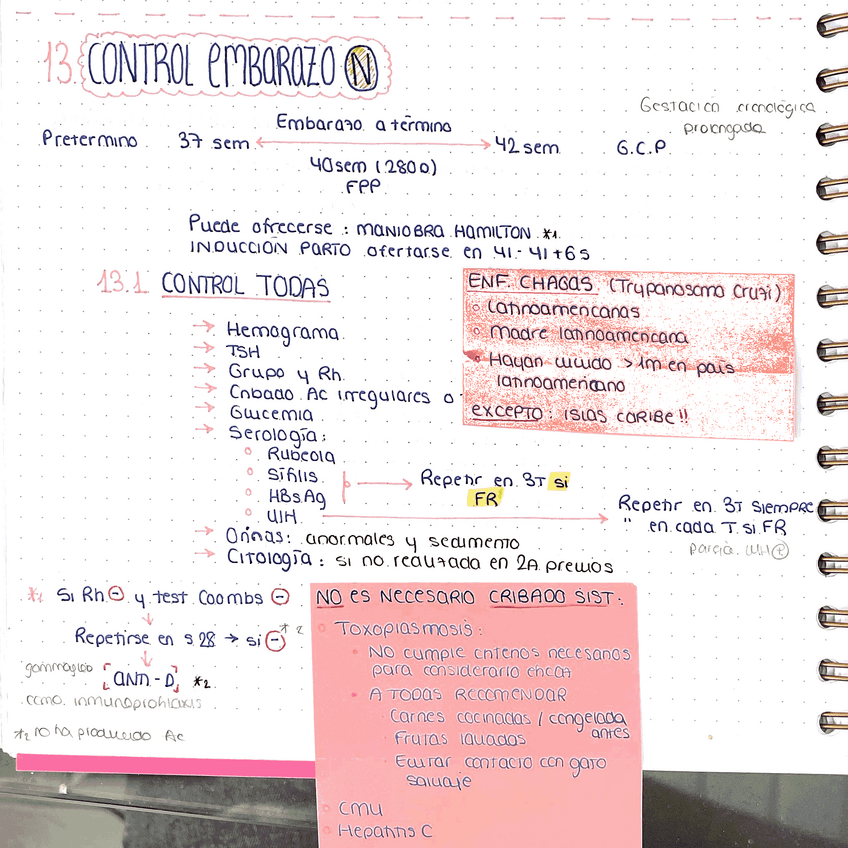 13. CONTROL EMBARAZO N
Gestación cronológica
prolongada
Embarazo a término
Pretermino 37 sem 42 sem G.C.P.
40 sem (280 D)
FPP
Puede ofrecerse : MANIOBRA HAMILTON *1
INDUCCIÓN PARTO ofertarse en 41 - 41+6 s
13.1 CONTROL TODAS
→ Hemograma
→ TSH
→ Grupo y Rh
→ Cribado Ac irregulares
→ Glucemia
→ Serología:
Rubeola
Sífilis
HBsAg
VIH
→ Repetir en 3T si
FR
→ Repetir en 3T SIEMPRE
" en cada T. si FR
pareja VIH+
→ Orinas: anormales y sedimento
→ Citología : si no realizada en 2A previos
ENF. CHAGAS (Trypanosoma Cruzi)
Latinoamericanas
Madre latinoamericana
Hayan vivido >1m en país
latinoamericano
EXCEPTO: ISLAS CARIBE!!
Si Rh - y test Coombs -
Repetirse en s 28 → si - *2
gammaglob [ANTI-D] *2
como inmunoprofilaxis
*2 no ha producido Ac
NO ES NECESARIO CRIBADO SIST:
Toxoplasmosis:
NO cumple criterios necesarios
para considerarlo eficaz
A TODAS RECOMENDAR
Carnes cocinadas / congelada
antes
Frutas lavadas
Evitar contacto con gato
salvaje
CMV
Hepatitis C